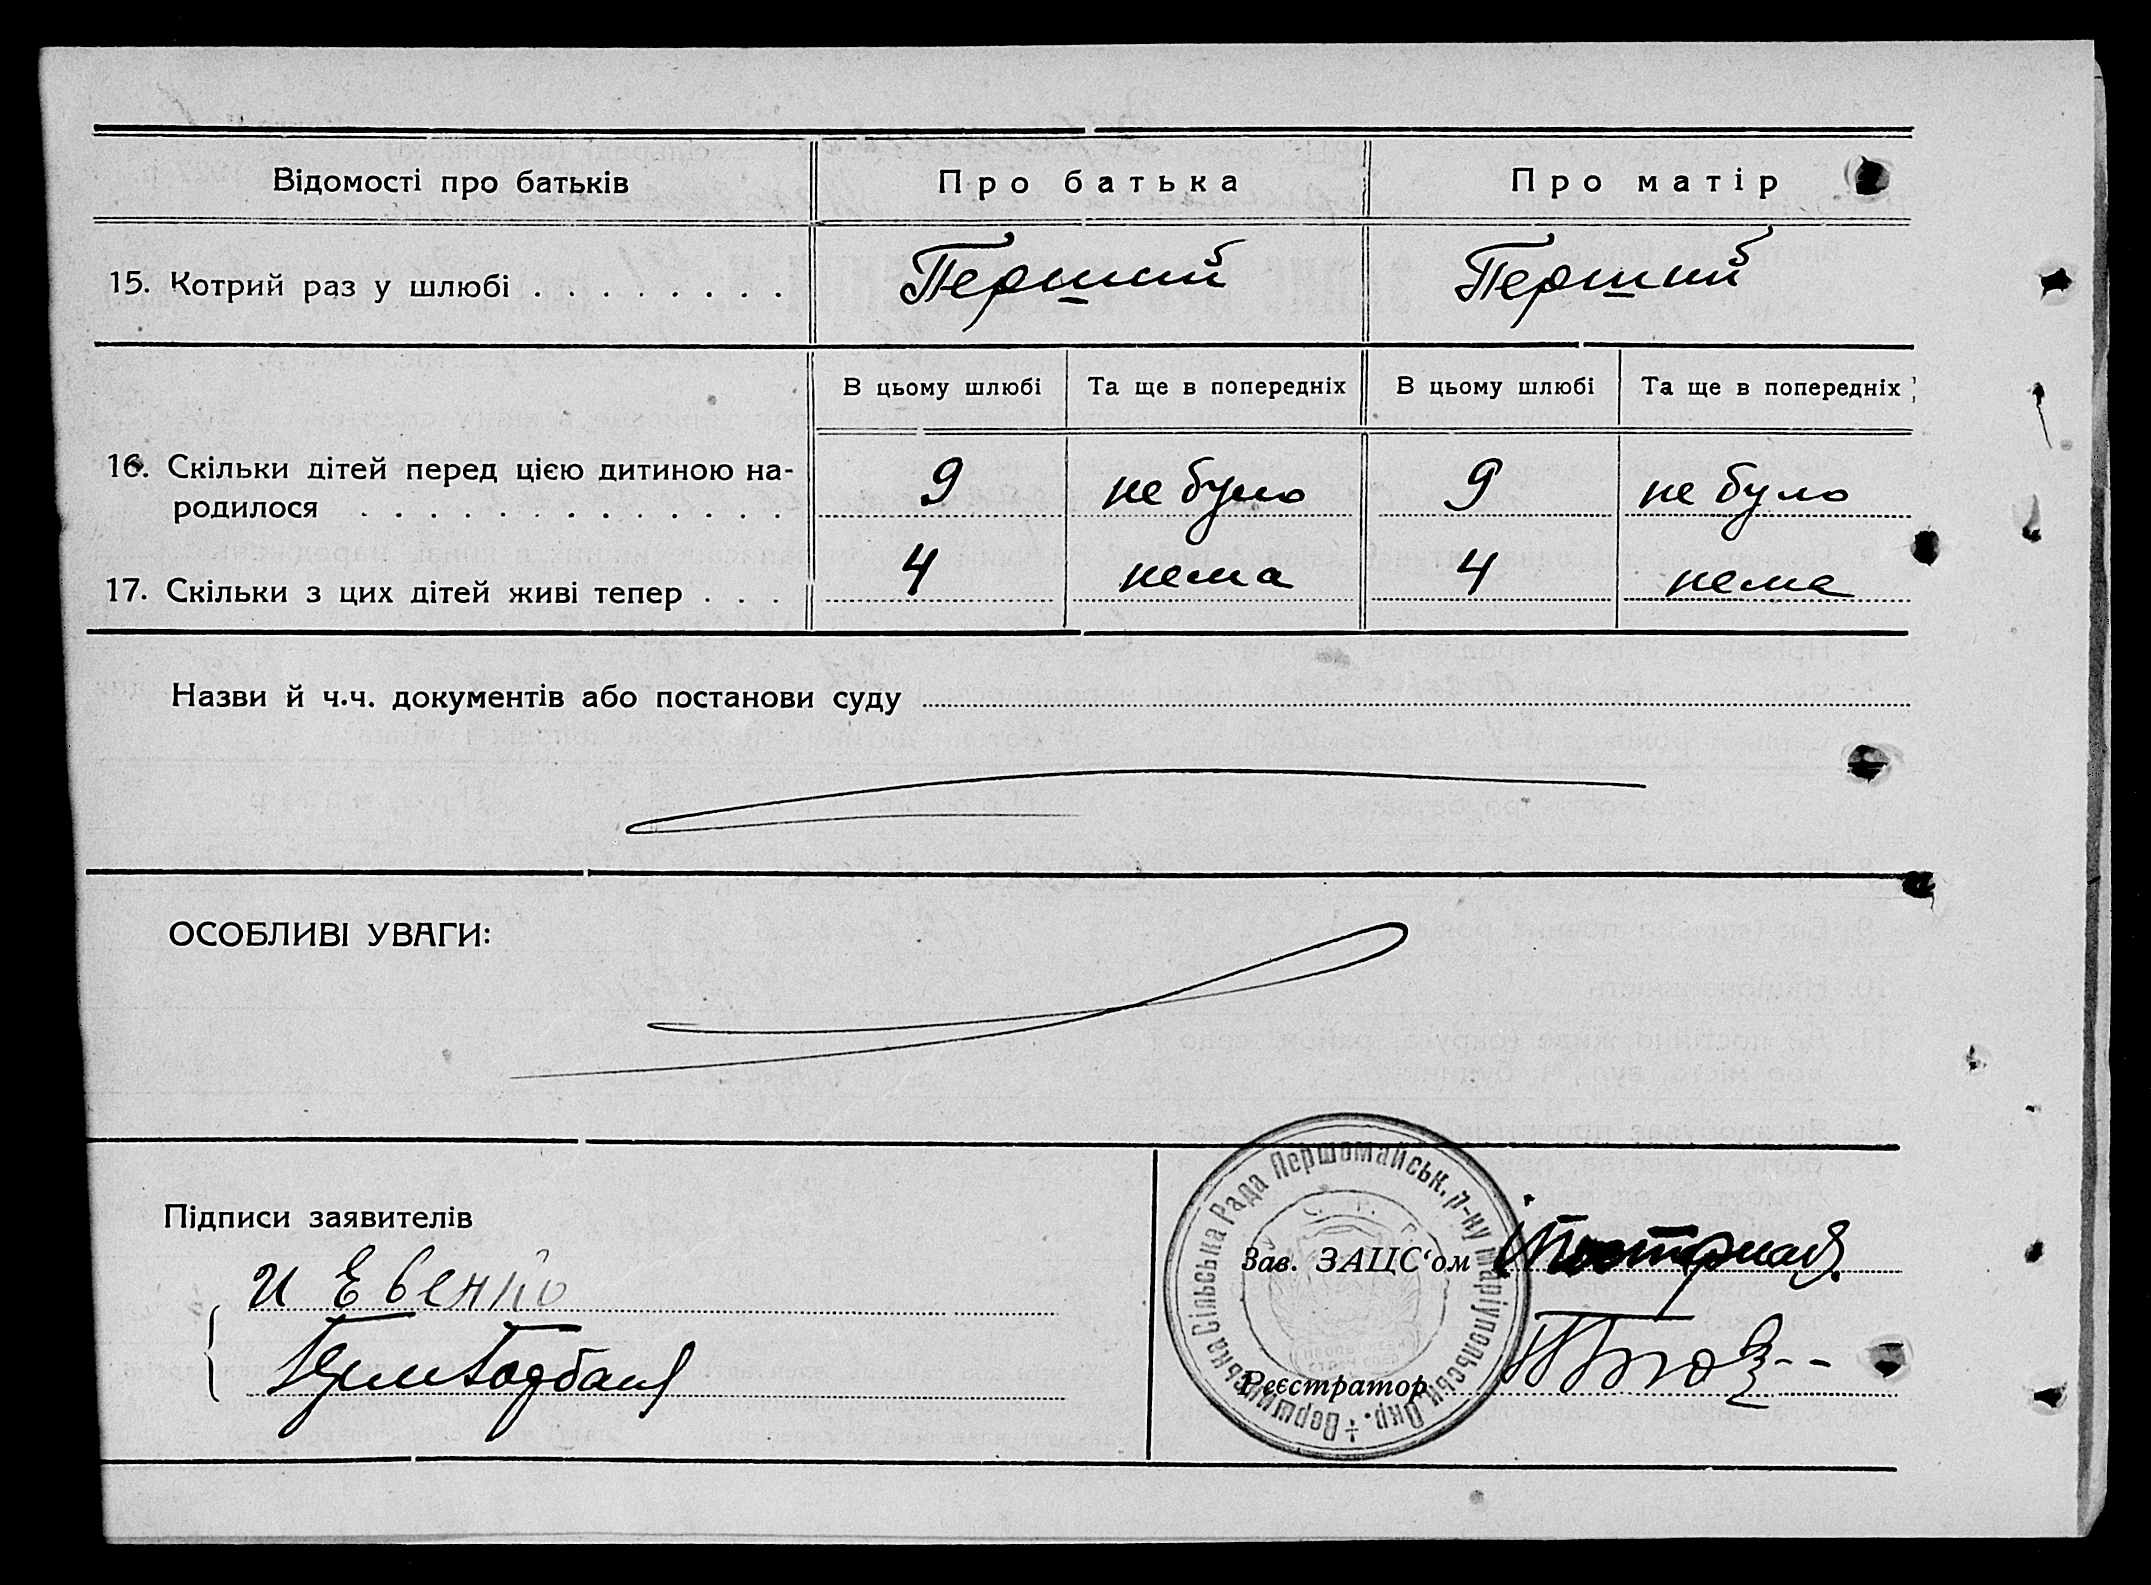 Відомості про батьків Про батька Про матір
15. Котрий раз у шлюбі . . . . . . . . Перший Перший
В цьому шлюбі Та ще в попередніх В цьому шлюбі Та ще в попередніх
16. Скільки дітей перед цією дитиною на-
родилося . . . . . . . . . . . . . 9 не було 9 не було
17. Скільки з цих дітей живі тепер . . . 4 нема 4 нема
Назви й ч.ч. документів або постанови суду
ОСОБЛИВІ УВАГИ:
Підписи заявителів
И Евенко
Зав. ЗАЦС'ом
Реєстратор
Сільська Рада Першомайськ. р-ку Маріупольськ. Окр.